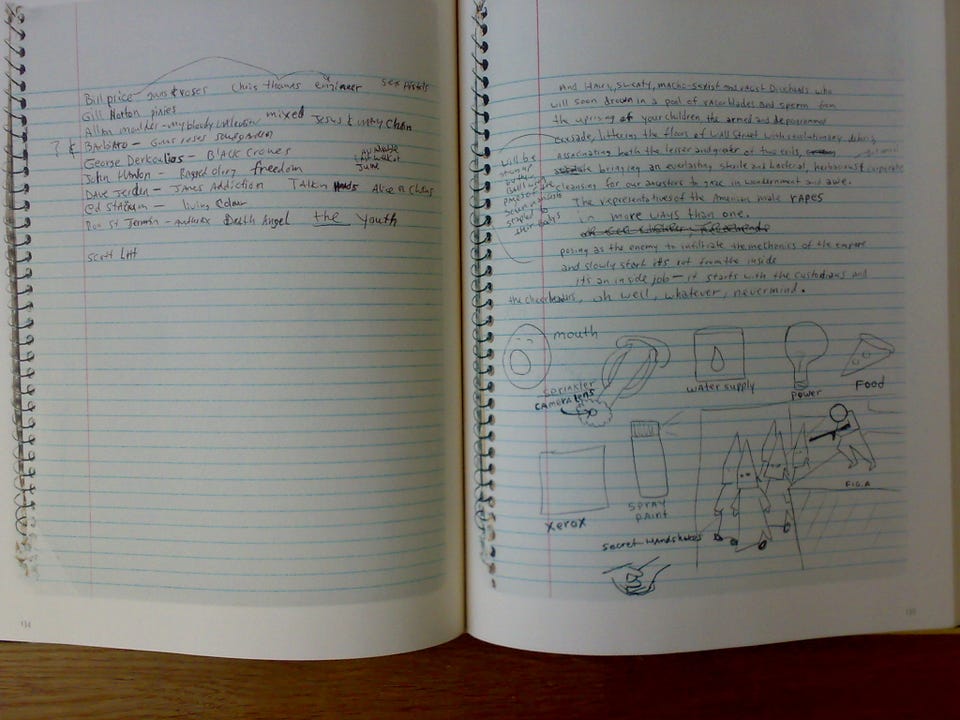 Bill price guns & roses Chris thomas engineer sex pistols
Gill Norton pixies
Allan moulder - my bloody valentine mixed Jesus & Mary Chain
? & BARBIARO - Guns roses soundgarden
George Derkoulias - BLACK Crowes
John Hanlon - Ragged glory freedom
available
June
DAVE Jerden - Janes Addiction TALKIN Heads Alice n Chains
ed STASIUM - living Colour
Ron St Jermin - Death Angel the Youth
SCOTT LITT
134
And HAIRY, SWEATY, MACHO SEXIST and RACIST who
will soon drown in a pool of razorblades and sperm from
the uprising of your children the armed and deprogrammed
crusade, littering the floors of WALL Street with revolutionary debris,
assassinating both the lesser and greater of two evils,
bringing an everlasting, sterile and bacterial, herbaceous & corporate
cleansing for our ancestors to gaze in wonderment and awe.
will be
strung up
by their
Balls with
pages of the
scum manifesto
stapled to
their
The representatives of the American male RAPES
in more ways than one.
posing as the enemy to infiltrate the mechanics of the empire
and slowly start its rot from the inside
its an inside job — it starts with the custodians and
the cheerleaders, oh well, whatever, nevermind.
mouth
sprinkler
CAMERA LENS
WATER SUPPLY
POWER
Food
XEROX
SPRAY
PAINT
FIG.A
secret HANDSHAKES